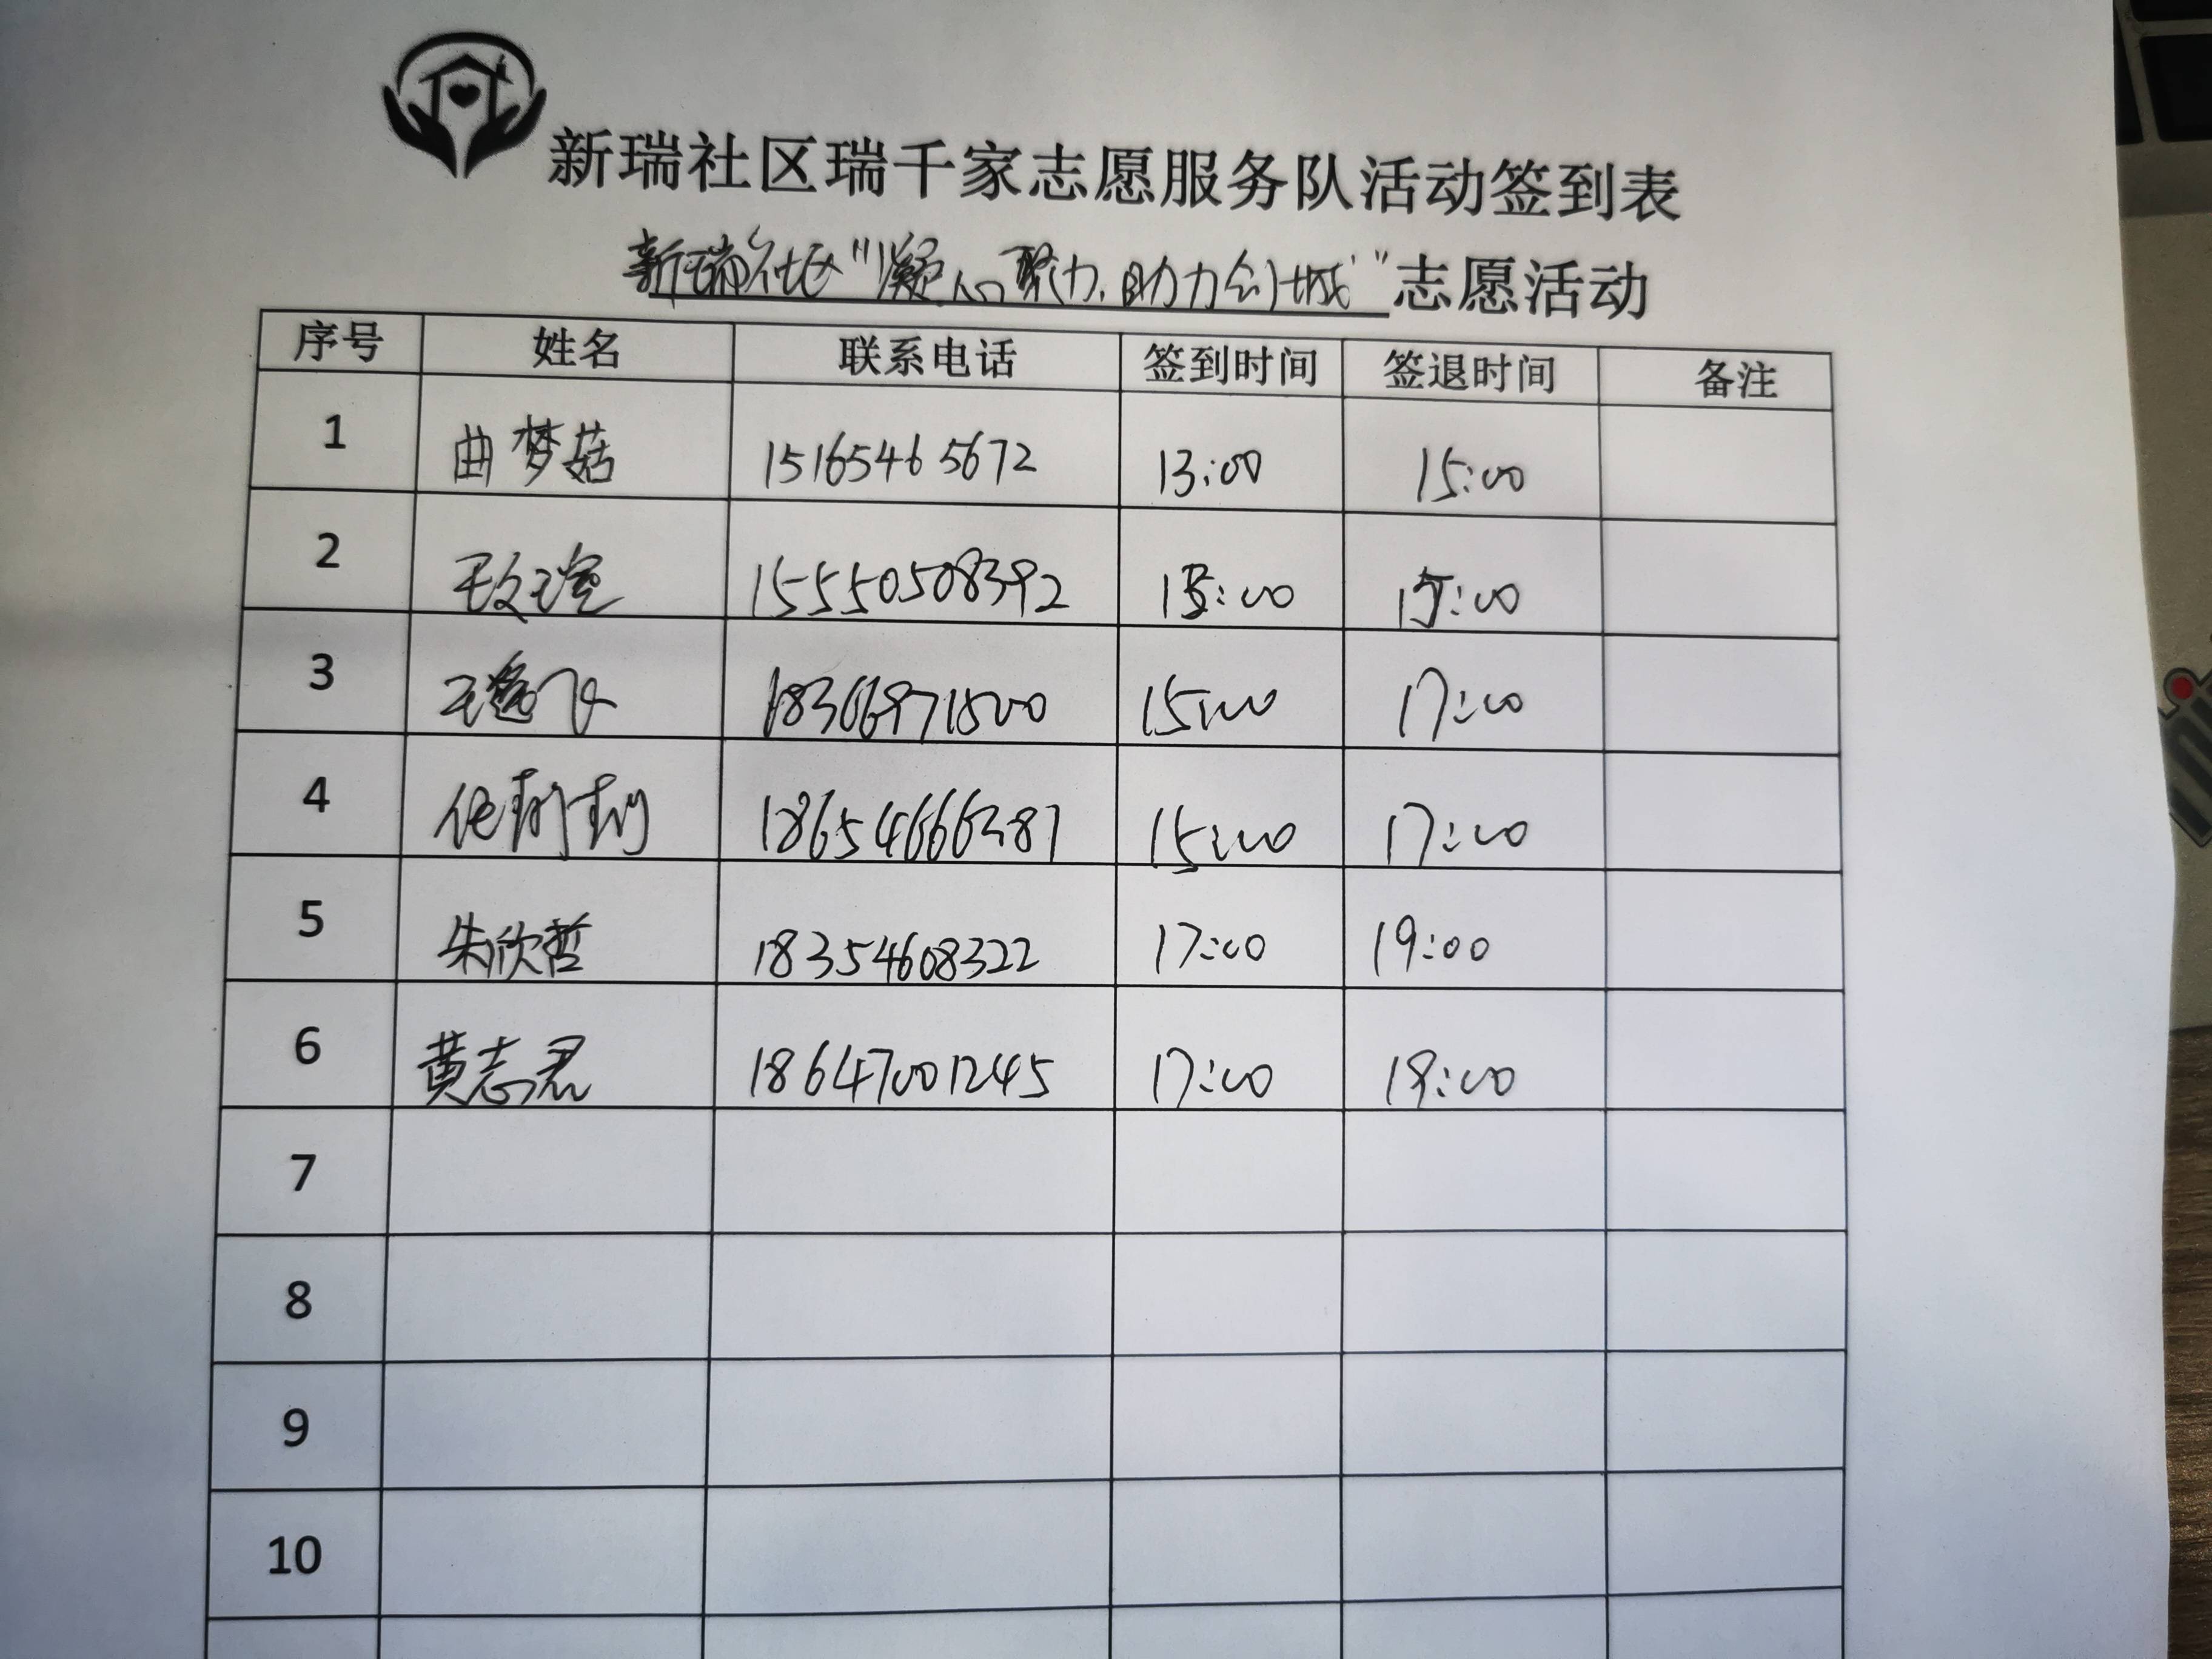 新瑞社区瑞千家志愿服务队活动签到表
新瑞社区"凝心聚力,助力创城"志愿活动
序号 姓名 联系电话 签到时间 签退时间 备注
1 曲梦菇 15165465672 13:00 15:00
2 15550508392 13:00 15:00
3 王逸飞 18306971500 15:00 17:00
4 任莉莉 15:00 17:00
5 朱欣哲 18354608322 17:00 19:00
6 黄志君 18647001245 17:00 19:00
7
8
9
10